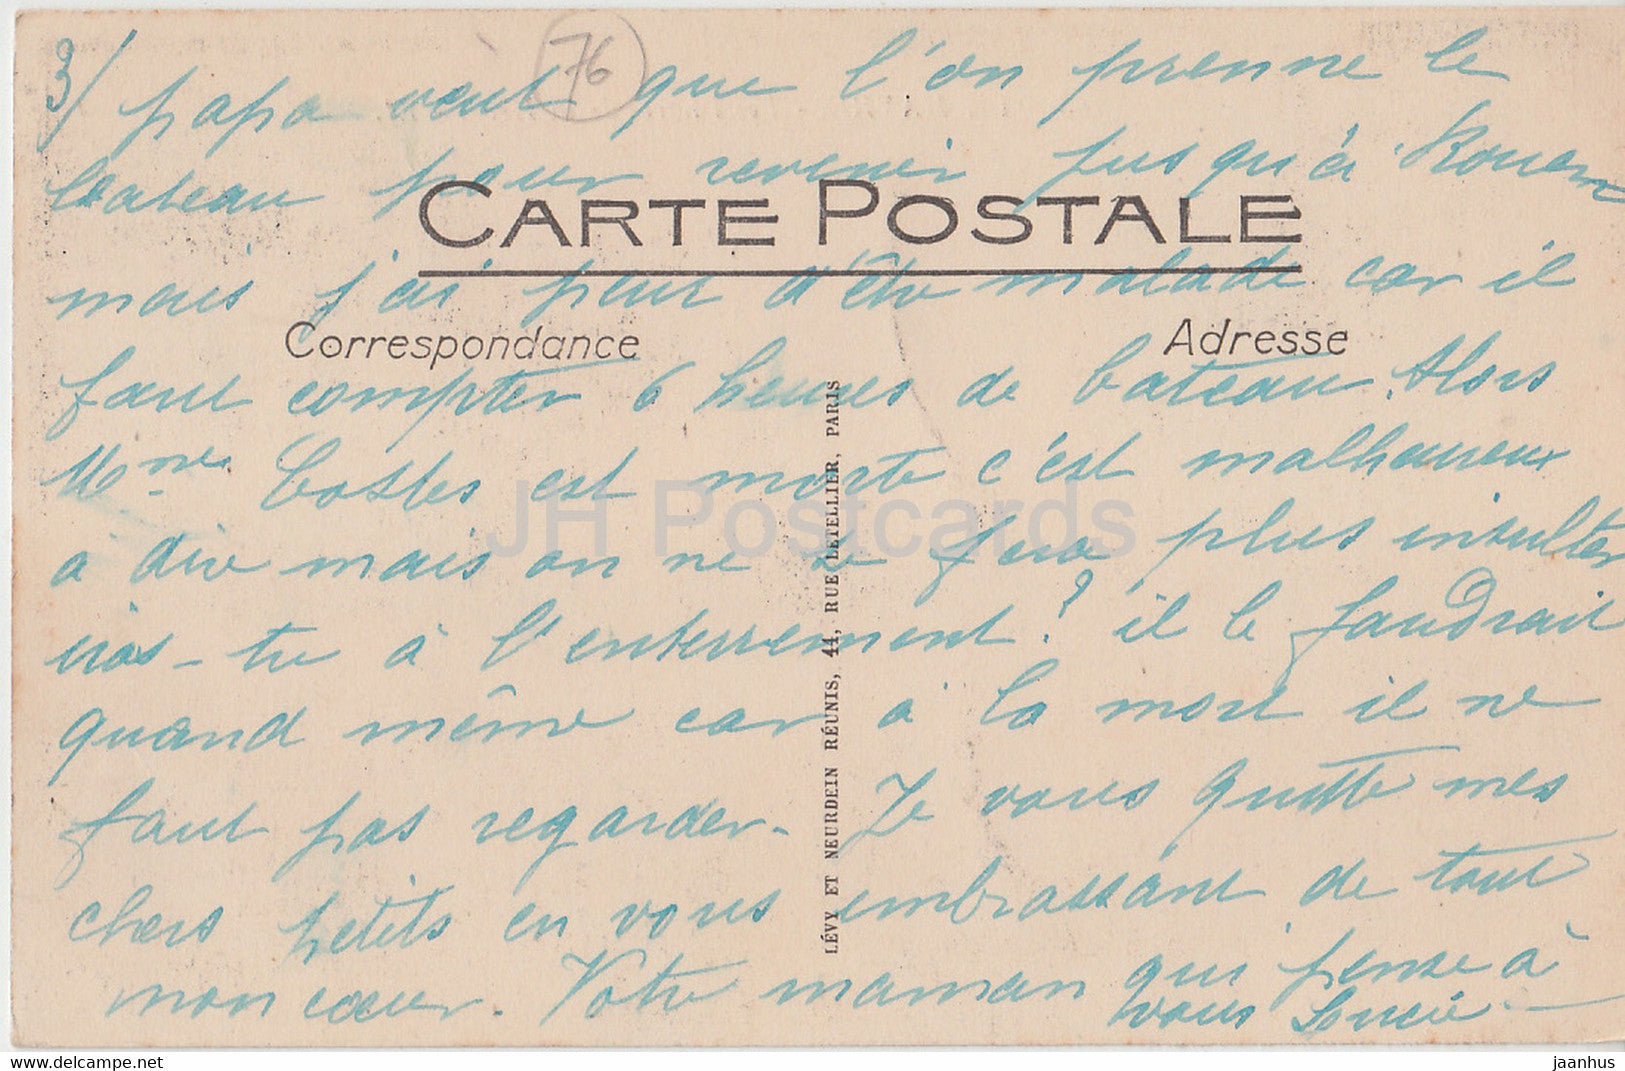 3/
76
papa veut que l'on prenne le
bateau pour revenir jusqu'à Rouen
CARTE POSTALE
mais j'ai peur d'être malade car il
Correspondance
Adresse
faut compter 6 heures de bateau. Alors
Mme Costes est morte c'est malheureux
à dire mais on ne se fera plus insulter
iras-tu à l'enterrement? il le faudrait
quand même car à la mort il ne
faut pas regarder. Je vous quitte mes
chers petits en vous embrassant de tout
mon cœur. Votre maman qui pense à
vous
LÉVY ET NEURDEIN RÉUNIS, 44, RUE LETELLIER, PARIS
JH Postcards
www.delcampe.net
jaanhus